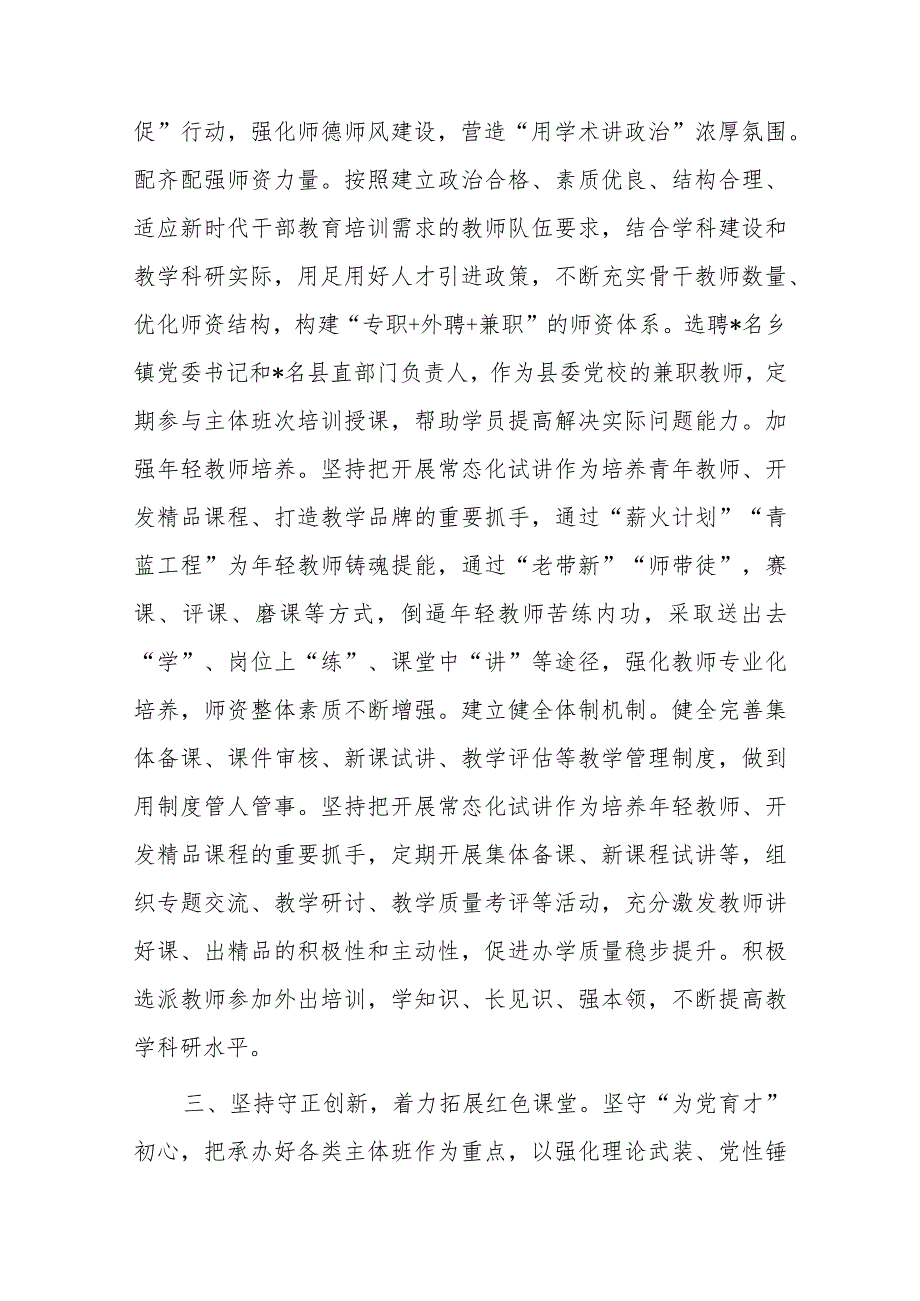 促”行动，强化师德师风建设，营造“用学术讲政治”浓厚氛围。
配齐配强师资力量。按照建立政治合格、素质优良、结构合理、
适应新时代干部教育培训需求的教师队伍要求，结合学科建设和
教学科研实际，用足用好人才引进政策，不断充实骨干教师数量、
优化师资结构，构建“专职+外聘+兼职”的师资体系。选聘*名乡
镇党委书记和*名县直部门负责人，作为县委党校的兼职教师，定
期参与主体班次培训授课，帮助学员提高解决实际问题能力。加
强年轻教师培养。坚持把开展常态化试讲作为培养青年教师、开
发精品课程、打造教学品牌的重要抓手，通过“薪火计划”“青
蓝工程”为年轻教师铸魂提能，通过“老带新”“师带徒”，赛
课、评课、磨课等方式，倒逼年轻教师苦练内功，采取送出去
“学”、岗位上“练”、课堂中“讲”等途径，强化教师专业化
培养，师资整体素质不断增强。建立健全体制机制。健全完善集
体备课、课件审核、新课试讲、教学评估等教学管理制度，做到
用制度管人管事。坚持把开展常态化试讲作为培养年轻教师、开
发精品课程的重要抓手，定期开展集体备课、新课程试讲等，组
织专题交流、教学研讨、教学质量考评等活动，充分激发教师讲
好课、出精品的积极性和主动性，促进办学质量稳步提升。积极
选派教师参加外出培训，学知识、长见识、强本领，不断提高教
学科研水平。
三、坚持守正创新，着力拓展红色课堂。坚守“为党育才”
初心，把承办好各类主体班作为重点，以强化理论武装、党性锤